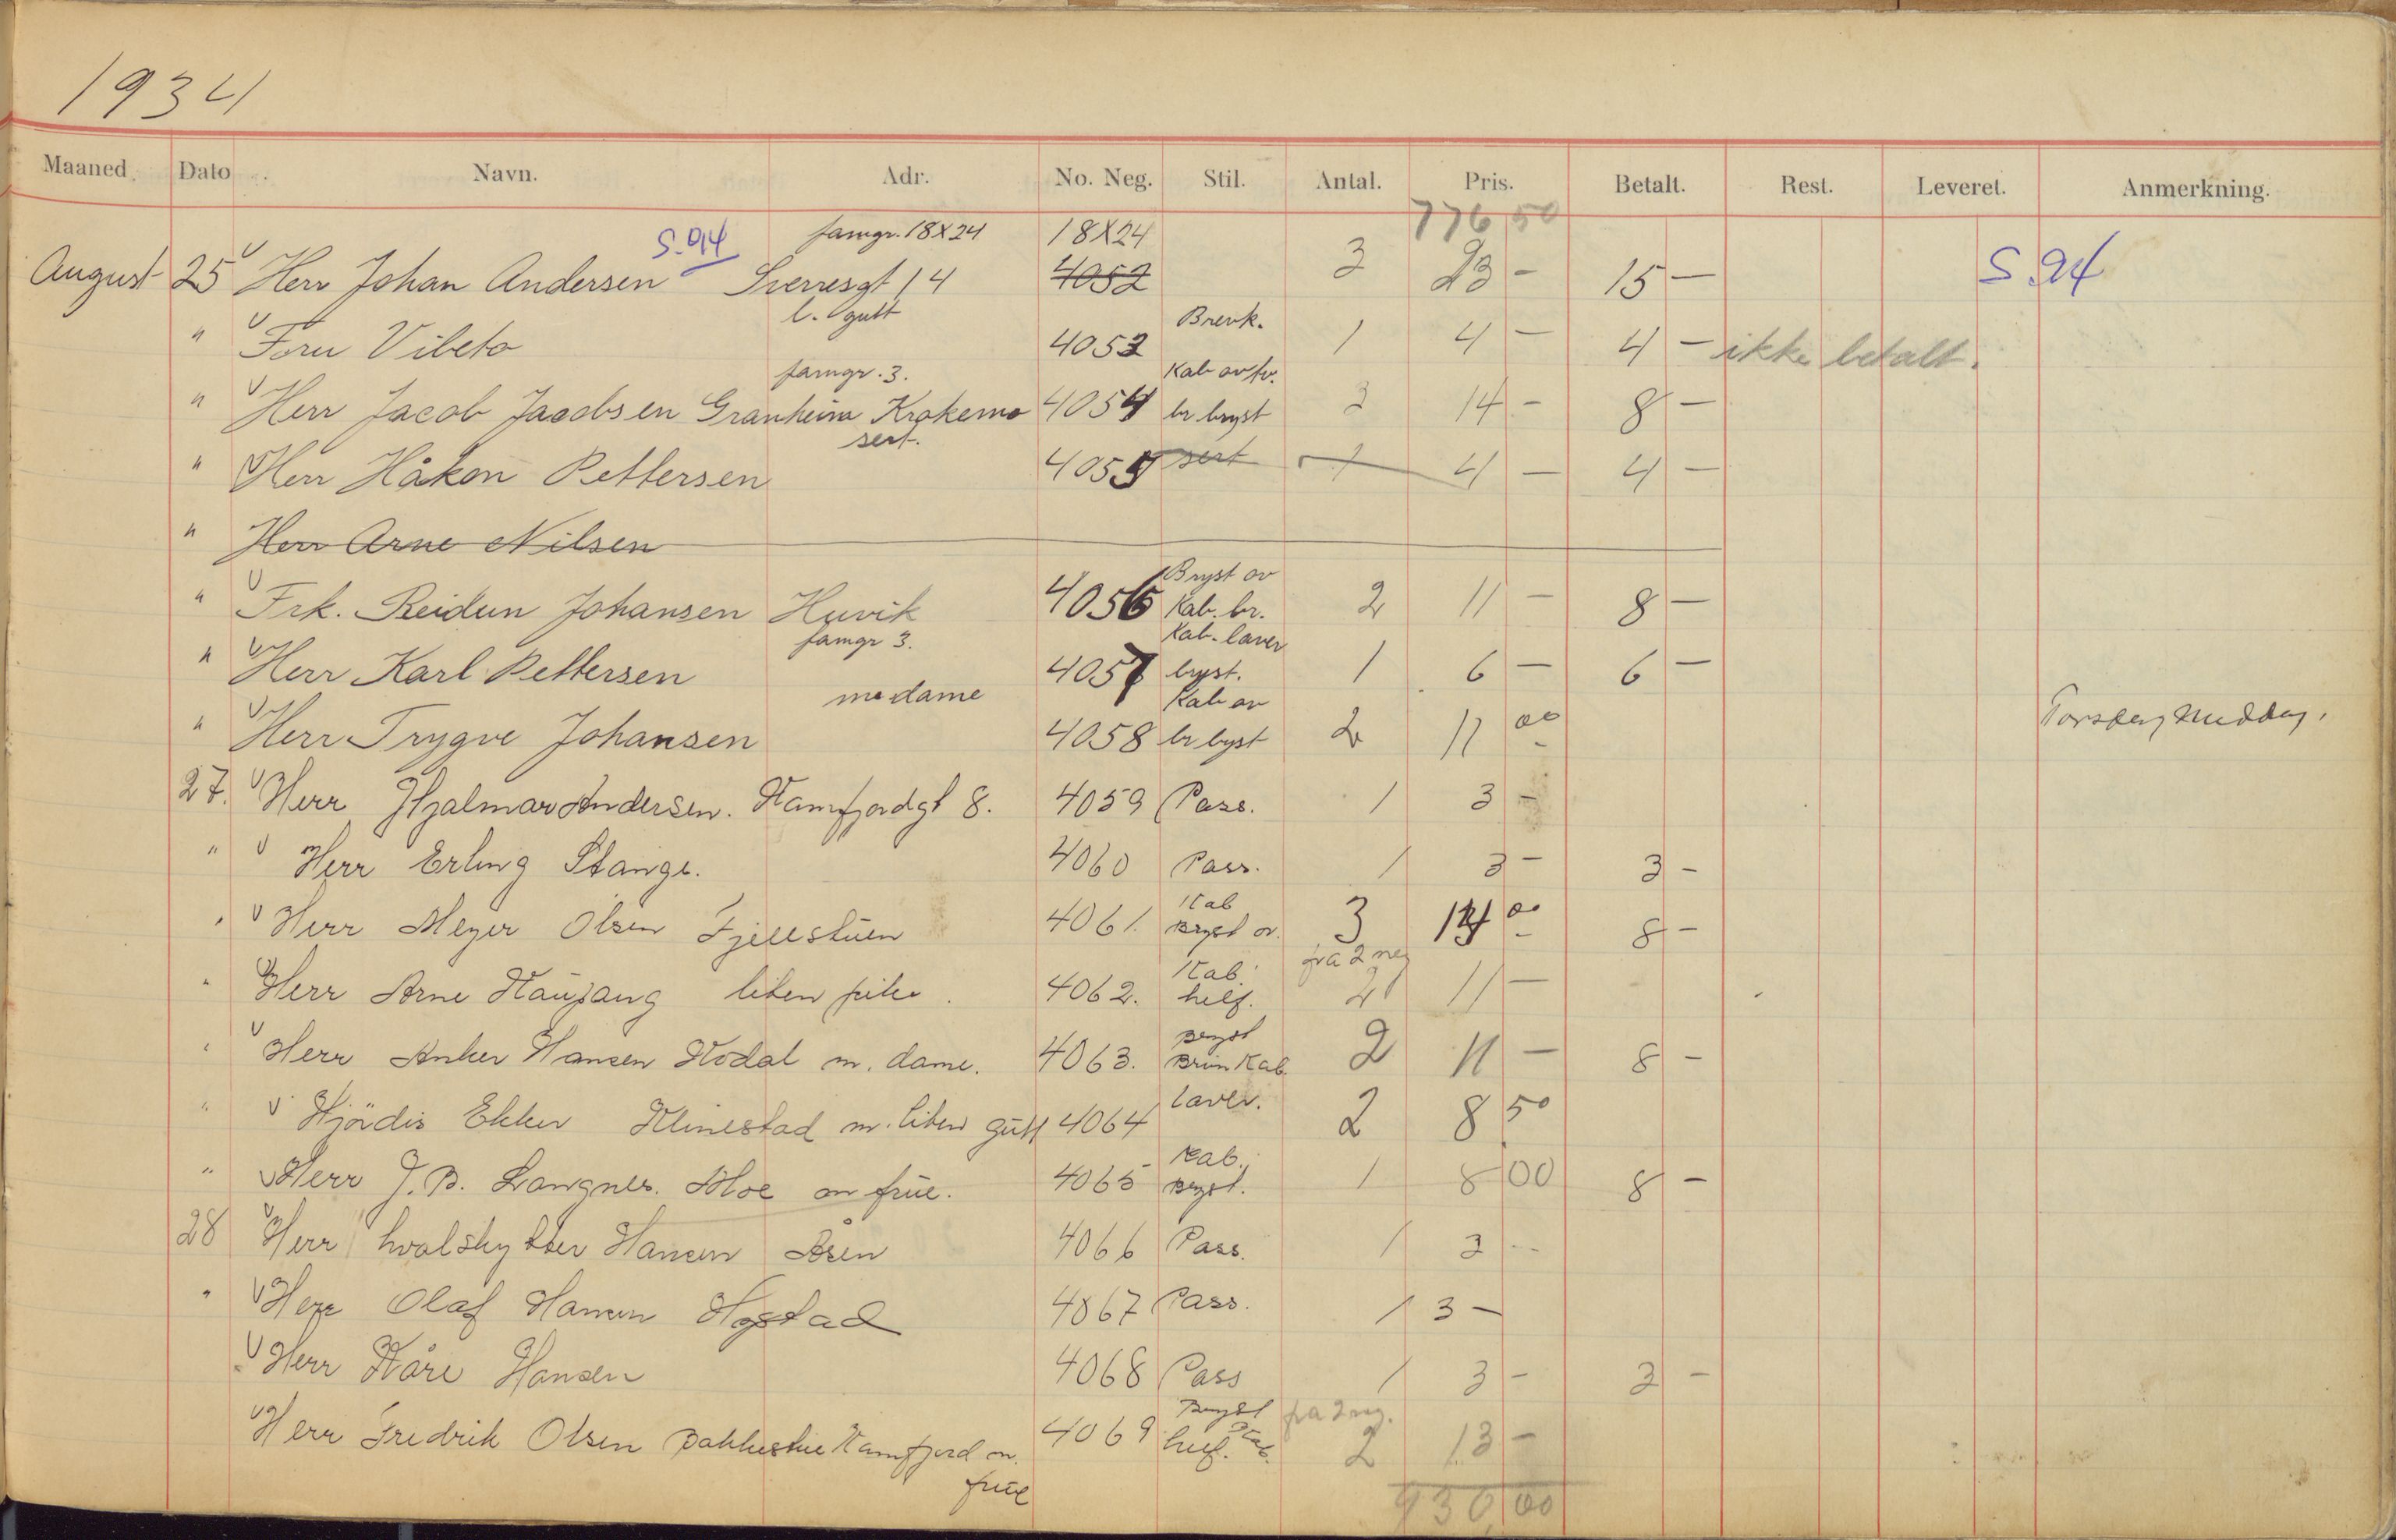 1934
Maaned Dato Navn. Adr. No. Neg. Stil. Antal. Pris. Betalt. Rest. Leveret. Anmerkning.
776 50
S. 94 famgr. 18X24 18X24
August 25 Herr Johan Andersen Sverresgt 14 4052 3 23 - 15 - S. 94
l. gutt Brevk.
" Fru Vibeto 4053 1 4 - 4 - ikke betalt.
famgr. 3. Kab av fv.
" Herr Jacob Jacobsen Granheim Krokemo 4054 br bryst 3 14 - 8 -
sert.
" Herr Håkon Pettersen 4055 sert 1 4 - 4 -
" Herr Arne Nilsen
Bryst ov
" Frk. Reidun Johansen Huvik 4056 Kab. br. 2 11 - 8 -
famgr 3. Kab. laver
" Herr Karl Pettersen 4057 bryst. 1 6 - 6 -
m dame Kab ov
" Herr Trygve Johansen 4058 br byst 2 11 00 Torsdag Middag.
27. Herr Hjalmar Andersen. Kamfjordgt 8. 4059 Pass. 1 3 -
" Herr Erling Stange. 4060 Pass. 1 3 - 3 -
Kab
" Herr Meyer Olsen Fjellstuen 4061. Bryst ov. 3 14 00 8 -
fra 2 neg Kab.
" Herr Arne Haugang liten pike. 4062. helf. 2 11 -
Bryst
" Herr Anker Hansen Kodal m. dame. 4063. Brun Kab. 2 11 - 8 -
laver.
" Hjördis Ekker Klinestad m. liten gutt 4064 2 8 50
Kab.
" Herr J. B. Langnes. Moe m frue. 4065 Bryst. 1 8 00 8 -
28 Herr hvalskytter Hansen Åsen 4066 Pass. 1 3 -
" Herr Olaf Hansen Hystad 4067 Pass. 1 3 -
" Herr Kåre Hansen 4068 Pass 1 3 - 3 -
Bryst fra 2 neg.
Herr Fredrik Olsen Bakkestue Kamfjord m. 4069 helf. Kab. 2 13 -
frue
930,00